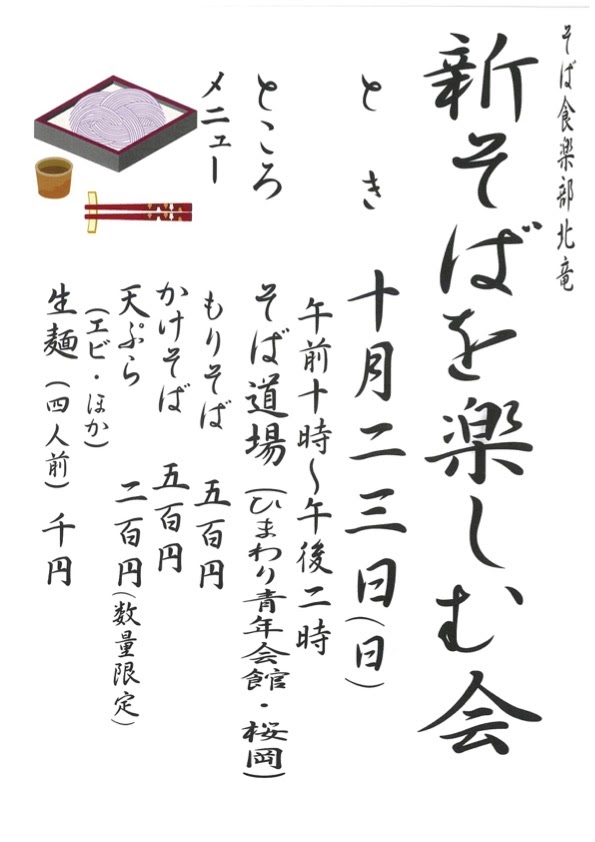 そば食楽部北竜
新そばを楽しむ会
とき 十月二三日(日)
午前十時～午後二時
ところ そば道場(ひまわり青年会館・桜岡)
メニュー もりそば 五百円
かけそば 五百円
天ぷら 二百円(数量限定)
(エビ・ほか)
生麺(四人前) 千円